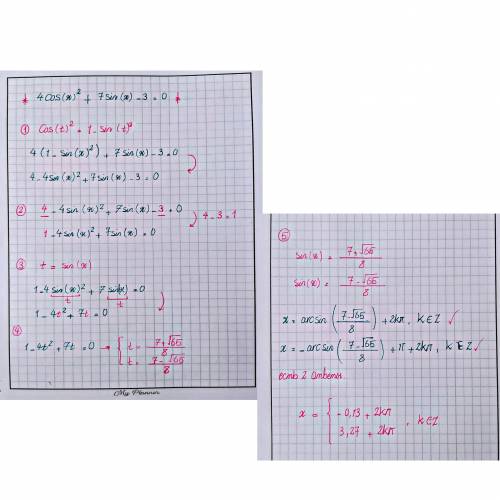 * 4cos(x)² + 7sin(x) - 3 = 0 *
① Cos(t)² = 1 - sin(t)²
4(1 - sin(x)²) + 7sin(x) - 3 = 0
4 - 4sin(x)² + 7sin(x) - 3 = 0
② 4 - 4sin(x)² + 7sin(x) - 3 = 0 ) 4 - 3 = 1
1 - 4sin(x)² + 7sin(x) = 0
③ t = sin(x)
1 - 4sin(x)² + 7sin(x) = 0
t t
1 - 4t² + 7t = 0
④ 1 - 4t² + 7t = 0 → { t = (7+√65)/8
t = (7-√65)/8
My Planner
⑤
sin(x) = (7+√65)/8
sin(x) = (7-√65)/8
x = arcsin((7-√65)/8) + 2kπ, k∈Z ✓
x = -arcsin((7-√65)/8) + π + 2kπ, k∈Z ✓
есть 2 ответа
x = { -0,13 + 2kπ
3,27 + 2kπ , k∈Z